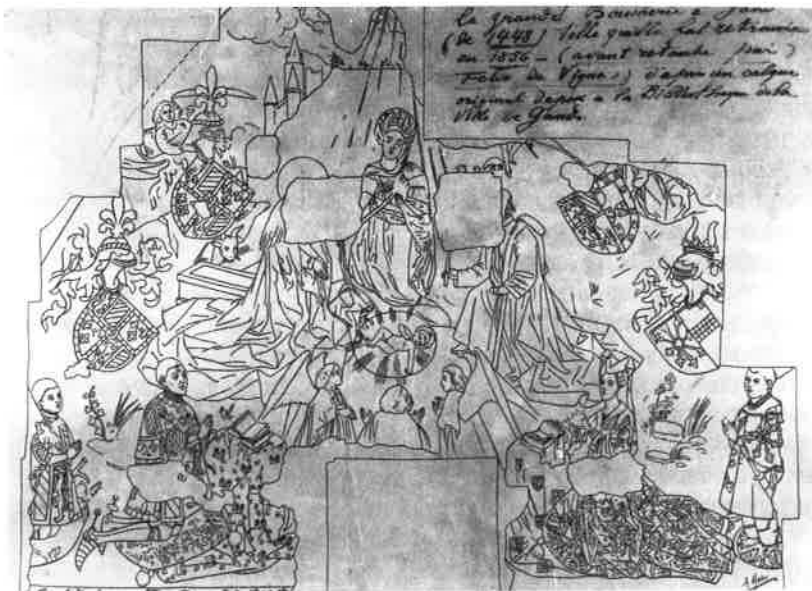 la grande Boucherie à Gand
(de 1448) Ville qu'elle fut retrouvée
en 1856 – (avant retouche par)
Felix de Vigne) d'après un calque
original déposé à la Bibliothèque de la
Ville de Gand.